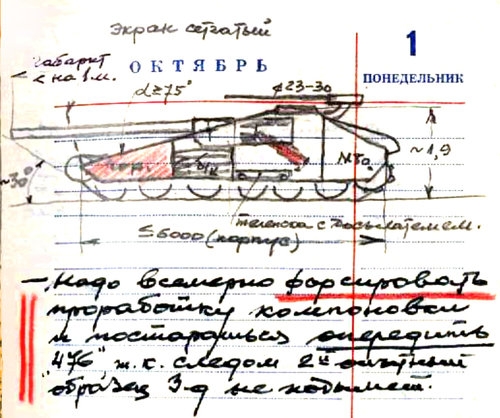 Экран сетчатый
габарит
< на 1 м.
ОКТЯБРЬ
1
ПОНЕДЕЛЬНИК
α≥75°
¢23-30
~1,9
~30°
МТО
тележка с досылателем.
≤6000 (корпус)
– Надо всемерно форсировать
проработку компоновки
и постараться опередить
"476" т.к. следом 2й опытный
образец 3-д не подымет.